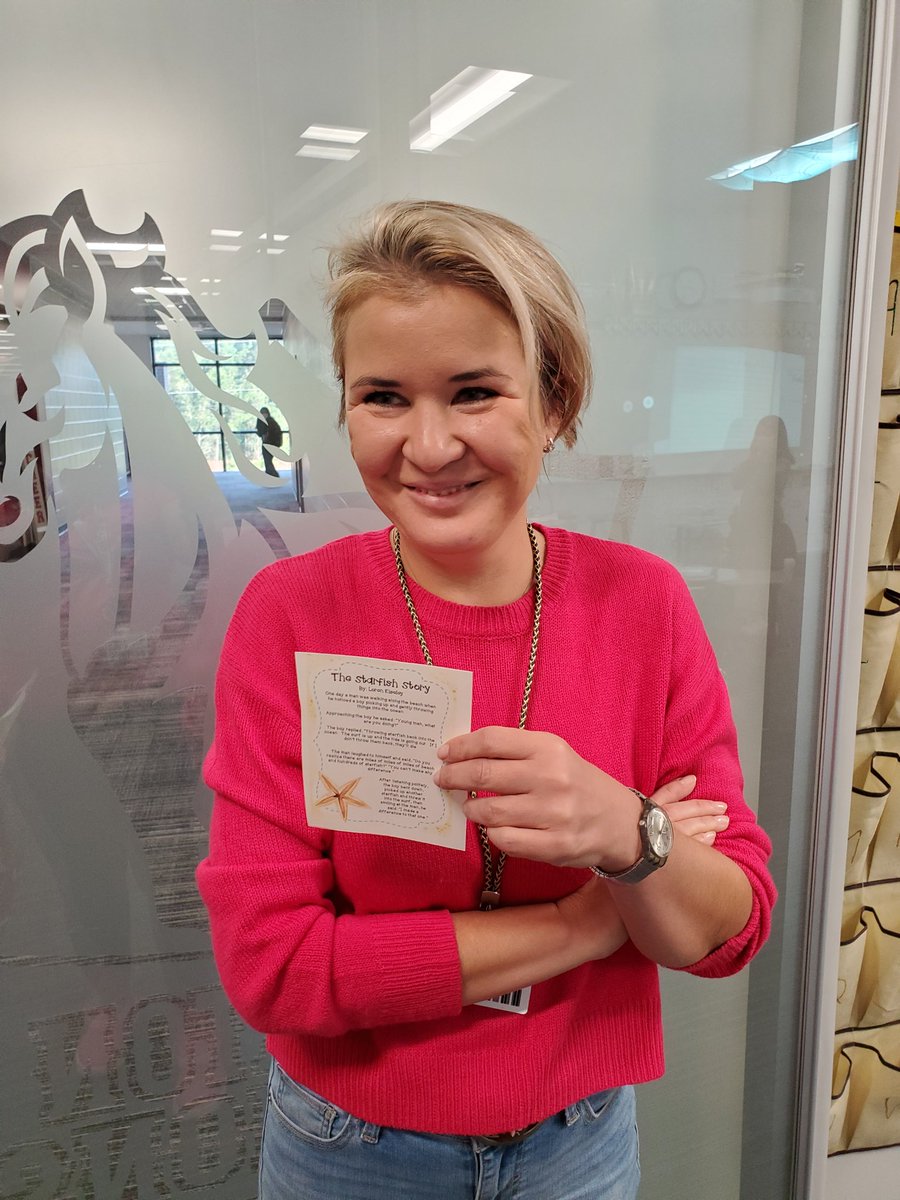 The starfish story
By: Loren Eiseley
One day a man was walking along the beach when
he noticed a boy picking up and gently throwing
things into the ocean.
Approaching the boy he asked: "Young man, what
are you doing?"
The boy replied, "Throwing starfish back into the
ocean. The surf is up and the tide is going out. If I
don't throw them back, they'll die.
The man laughed to himself and said, "Do you
realize there are miles of miles of miles of beach
and hundreds of starfish? "You can't make any
difference."
After listening politely,
the boy bent down,
picked up another
starfish and threw it
into the surf, then
smiling at the man, he
said, "I made a
difference to that one."